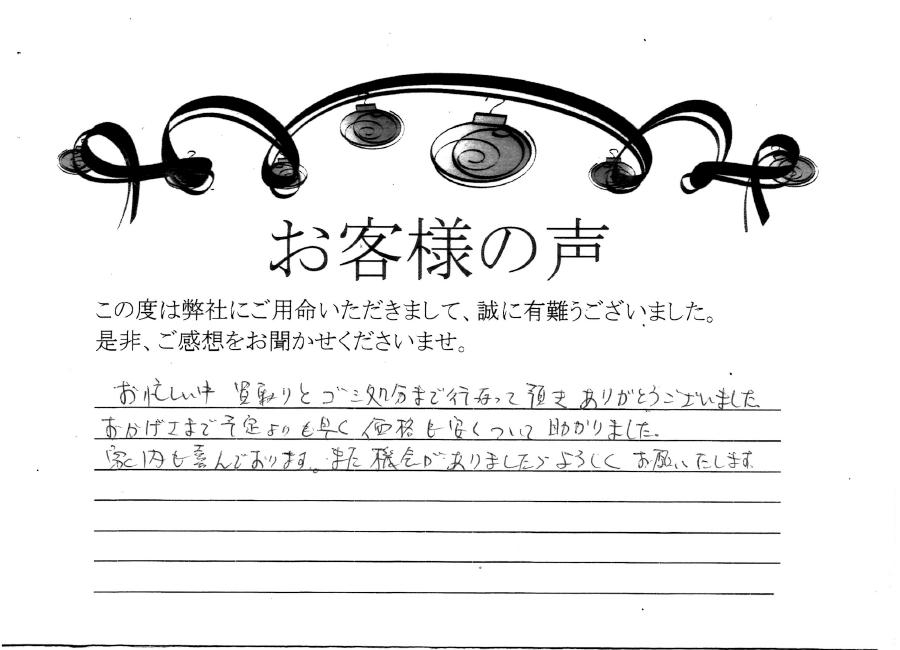 お客様の声
この度は弊社にご用命いただきまして、誠に有難うございました。
是非、ご感想をお聞かせくださいませ。
お忙しい中 買取りとゴミ処分まで行なって頂き ありがとうございました
おかげさまで予定よりも早く 価格も安くついて 助かりました。
家内も喜んでおります。また機会がありましたらよろしく お願いたします